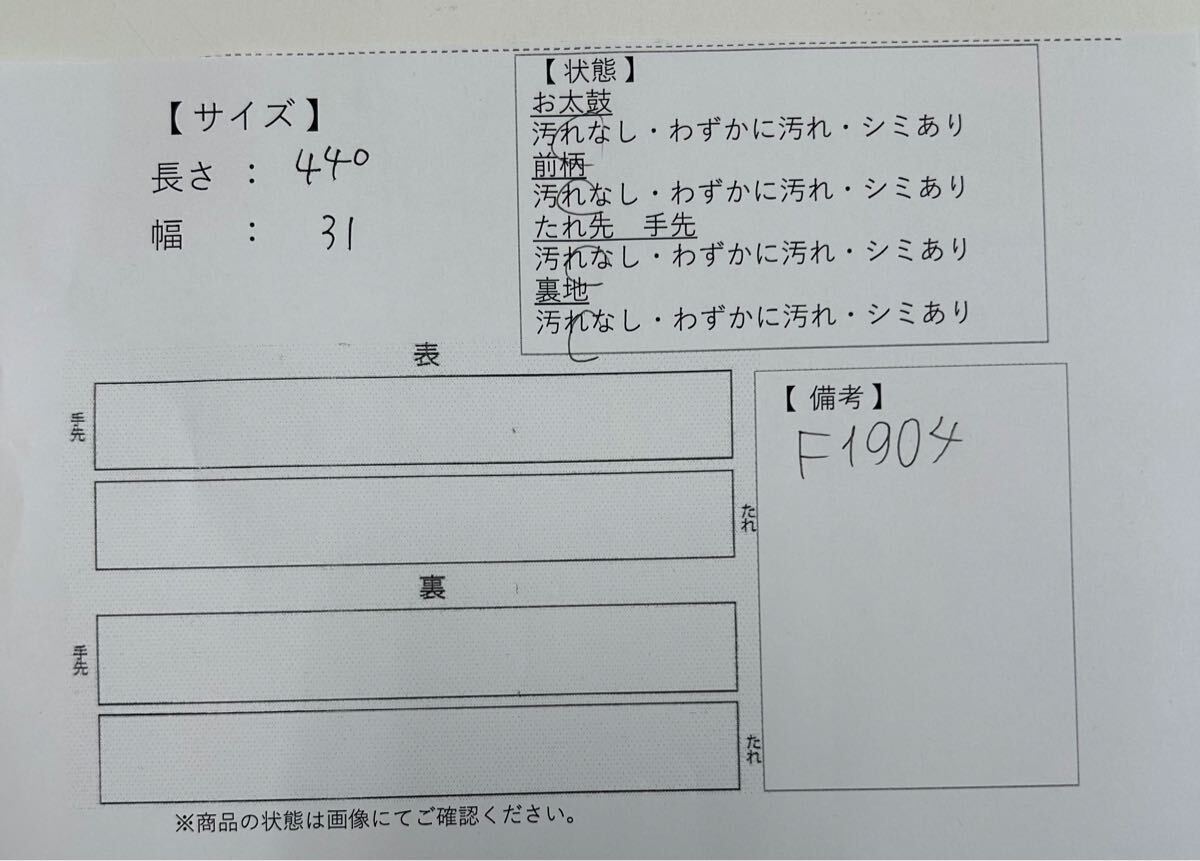 【サイズ】
長さ : 440
幅 : 31
【状態】
お太鼓
汚れなし・わずかに汚れ・シミあり
前柄
汚れなし・わずかに汚れ・シミあり
たれ先 手先
汚れなし・わずかに汚れ・シミあり
裏地
汚れなし・わずかに汚れ・シミあり
表
手先
たれ
裏
手先
たれ
【備考】
F1904
※商品の状態は画像にてご確認ください。